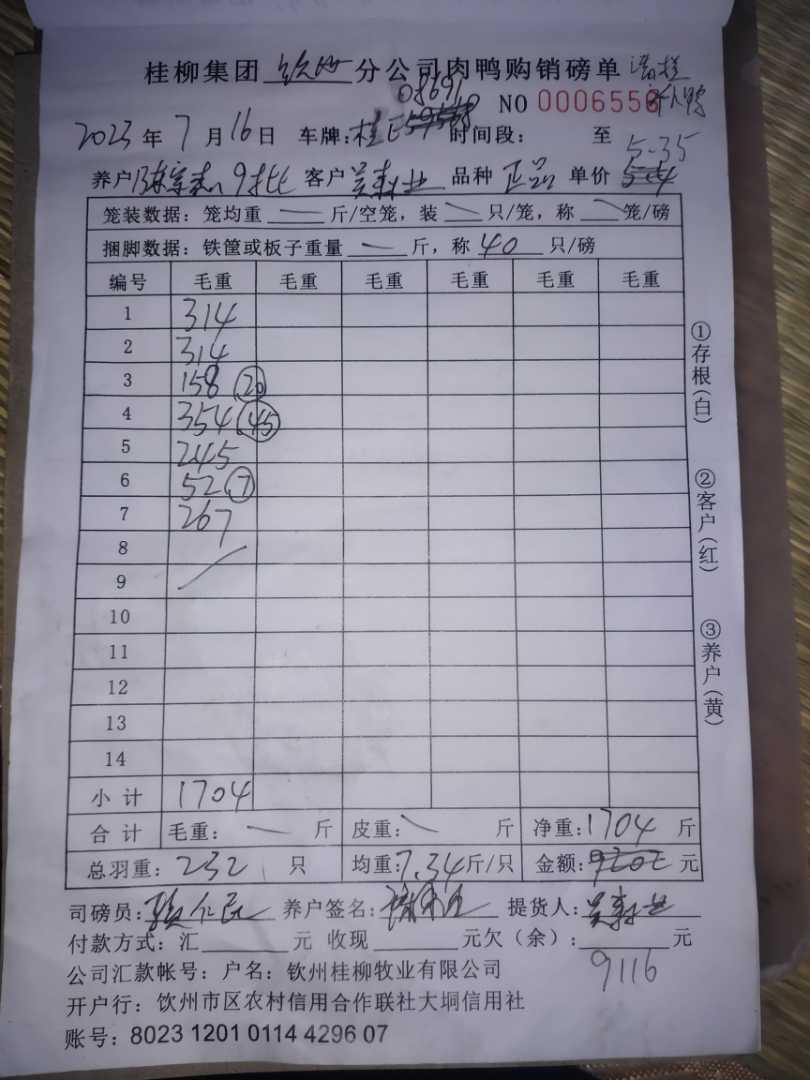 桂柳集团 钦州 分公司肉鸭购销磅单
NO 0006556
2023 年 7 月 16 日 车牌: 桂 08691 时间段: 至
5.35
养户 9批 客户 品种 正品 单价 5.4
笼装数据: 笼均重 — 斤/空笼, 装 — 只/笼, 称 — 笼/磅
捆脚数据: 铁筐或板子重量 — 斤, 称 40 只/磅
编号 毛重 毛重 毛重 毛重 毛重 毛重
1 314
2 314
3 158 20
4 354 45
5 245
6 52 7
7 267
8
9
10
11
12
13
14
小计 1704
合计 毛重: — 斤 皮重: — 斤 净重: 1704 斤
总羽重: 232 只 均重: 7.34 斤/只 金额: 元
司磅员: 养户签名: 提货人:
付款方式: 汇 元 收现 元欠(余): 元
9116
公司汇款帐号: 户名: 钦州桂柳牧业有限公司
开户行: 钦州市区农村信用合作联社大垌信用社
账号: 8023 1201 0114 4296 07
①存根(白)
②客户(红)
③养户(黄)